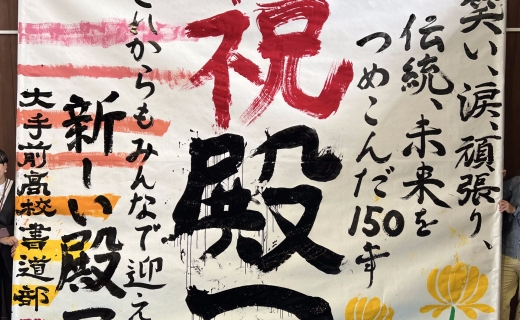 笑い、涙、頑張り、
伝統、未来を
つめこんだ150年
祝
殿一
これからもみんなで迎え
新しい殿一
大手前高校書道部